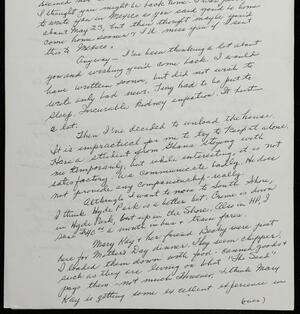 I thought you might be back home
to write you in Mexico as you said you'd be home
about May 23, but then I thought maybe you'd
come home sooner & I'd miss you if I sent
this to Mexico.
Anyway - I've been thinking a lot about
you and wishing you'd come back. I would
have written sooner, but did not wish to
write only bad news. Tiny had to be put to
sleep. Incurable kidney It hurt
a lot.
Then I've decided to unload the house.
It is impractical for me to try to keep it alone.
Have a student from Ghana staying with
me temporarily, but while interesting it is not
satisfactory. We communicate badly. He does
not provide any companionship really.
Although I want to move to South Shore,
I think Hyde Park is a better bet. Crime is down
in Hyde Park, but up in the Shore. Also in HP, I
save a month in bus & train fares.
Mary Kay & her friend Becky were just
here for Mother's Day dinner. They seem chipper.
I loaded them down with food - canned goods &
such as they are living on what "The Seed"
pays them - not much. However, I think Mary
Kay is getting some excellent experience in
(over)